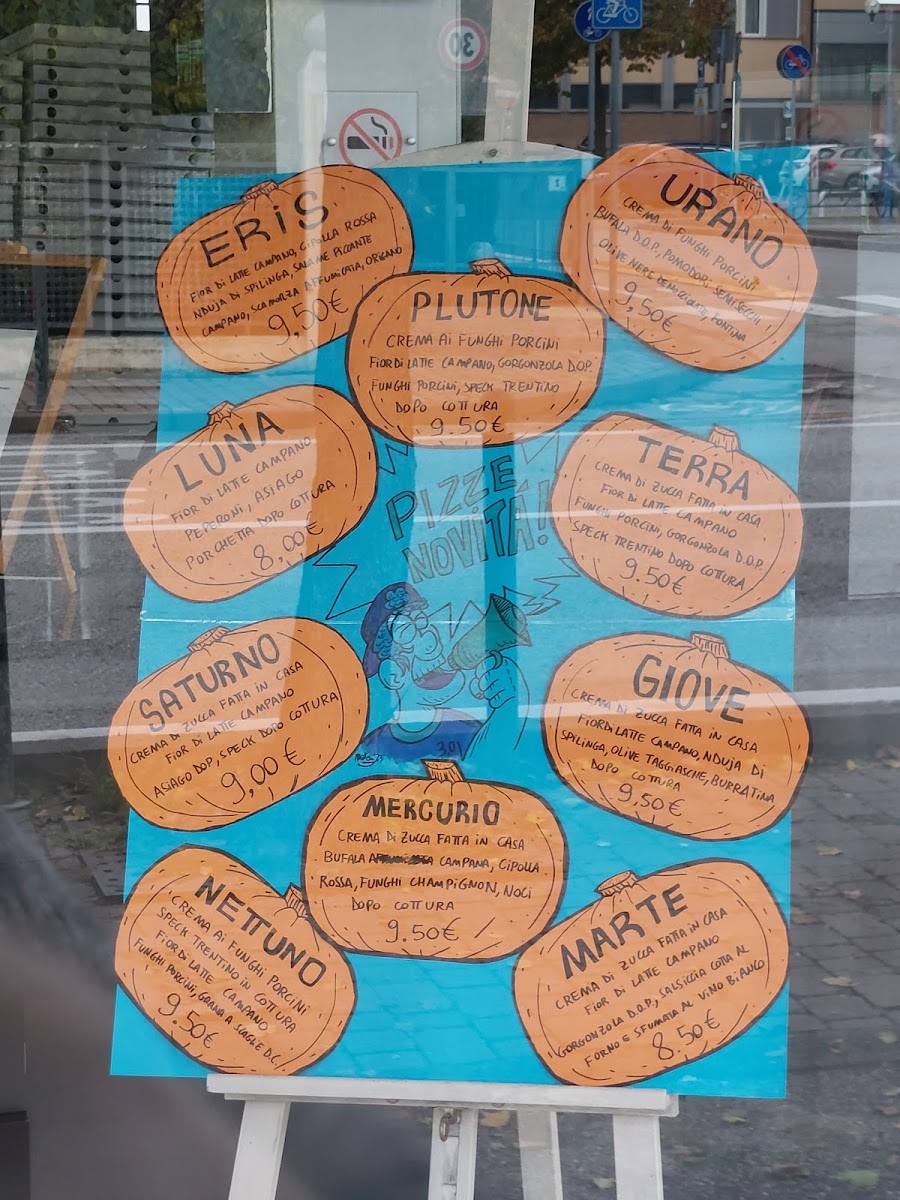 30
ERIS
FIOR DI LATTE CAMPANO, CIPOLLA ROSSA
NDUJA DI SPILINGA, SALAME PICCANTE
CAMPANO, SCAMORZA AFFUMICATA, ORIGANO
9.50€
URANO
CREMA DI FUNGHI PORCINI
BUFALA D.O.P., POMODORI SEMISECCHI
OLIVE NERE DENOCCIOLATE, FONTINA
9,50€
PLUTONE
CREMA AI FUNGHI PORCINI
FIOR DI LATTE CAMPANO, GORGONZOLA D.O.P.
FUNGHI PORCINI, SPECK TRENTINO
DOPO COTTURA
9.50€
LUNA
FIOR DI LATTE CAMPANO
PEPERONI, ASIAGO
PORCHETTA DOPO COTTURA
8,00€
PIZZE
NOVITÀ!
TERRA
CREMA DI ZUCCA FATTA IN CASA
FIOR DI LATTE CAMPANO
FUNGHI PORCINI, GORGONZOLA D.O.P.
SPECK TRENTINO DOPO COTTURA
9.50€
SATURNO
CREMA DI ZUCCA FATTA IN CASA
FIOR DI LATTE CAMPANO
ASIAGO DOP, SPECK DOPO COTTURA
9,00€
GIOVE
CREMA DI ZUCCA FATTA IN CASA
FIOR DI LATTE CAMPANO, NDUJA DI
SPILINGA, OLIVE TAGGIASCHE, BURRATINA
DOPO COTTURA
9,50€
3.0
MERCURIO
CREMA DI ZUCCA FATTA IN CASA
BUFALA CAMPANA, CIPOLLA
ROSSA, FUNGHI CHAMPIGNON, NOCI
DOPO COTTURA
9.50€
NETTUNO
CREMA AI FUNGHI PORCINI
SPECK TRENTINO IN COTTURA
FIOR DI LATTE CAMPANO
FUNGHI PORCINI, GRANA A SCAGLIE D.C.
9.50€
MARTE
CREMA DI ZUCCA FATTA IN CASA
FIOR DI LATTE CAMPANO
GORGONZOLA D.O.P., SALSICCIA COTTA AL
FORNO E SFUMATA AL VINO BIANCO
8.50€